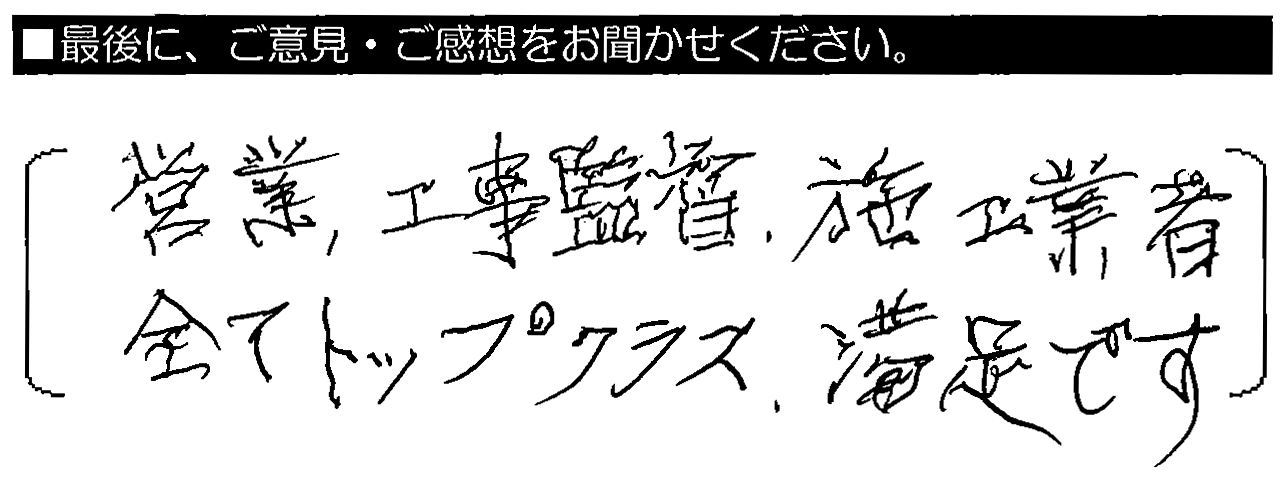 ■最後に、ご意見・ご感想をお聞かせください。
営業、工事監督、施工業者
全てトップクラス、満足です